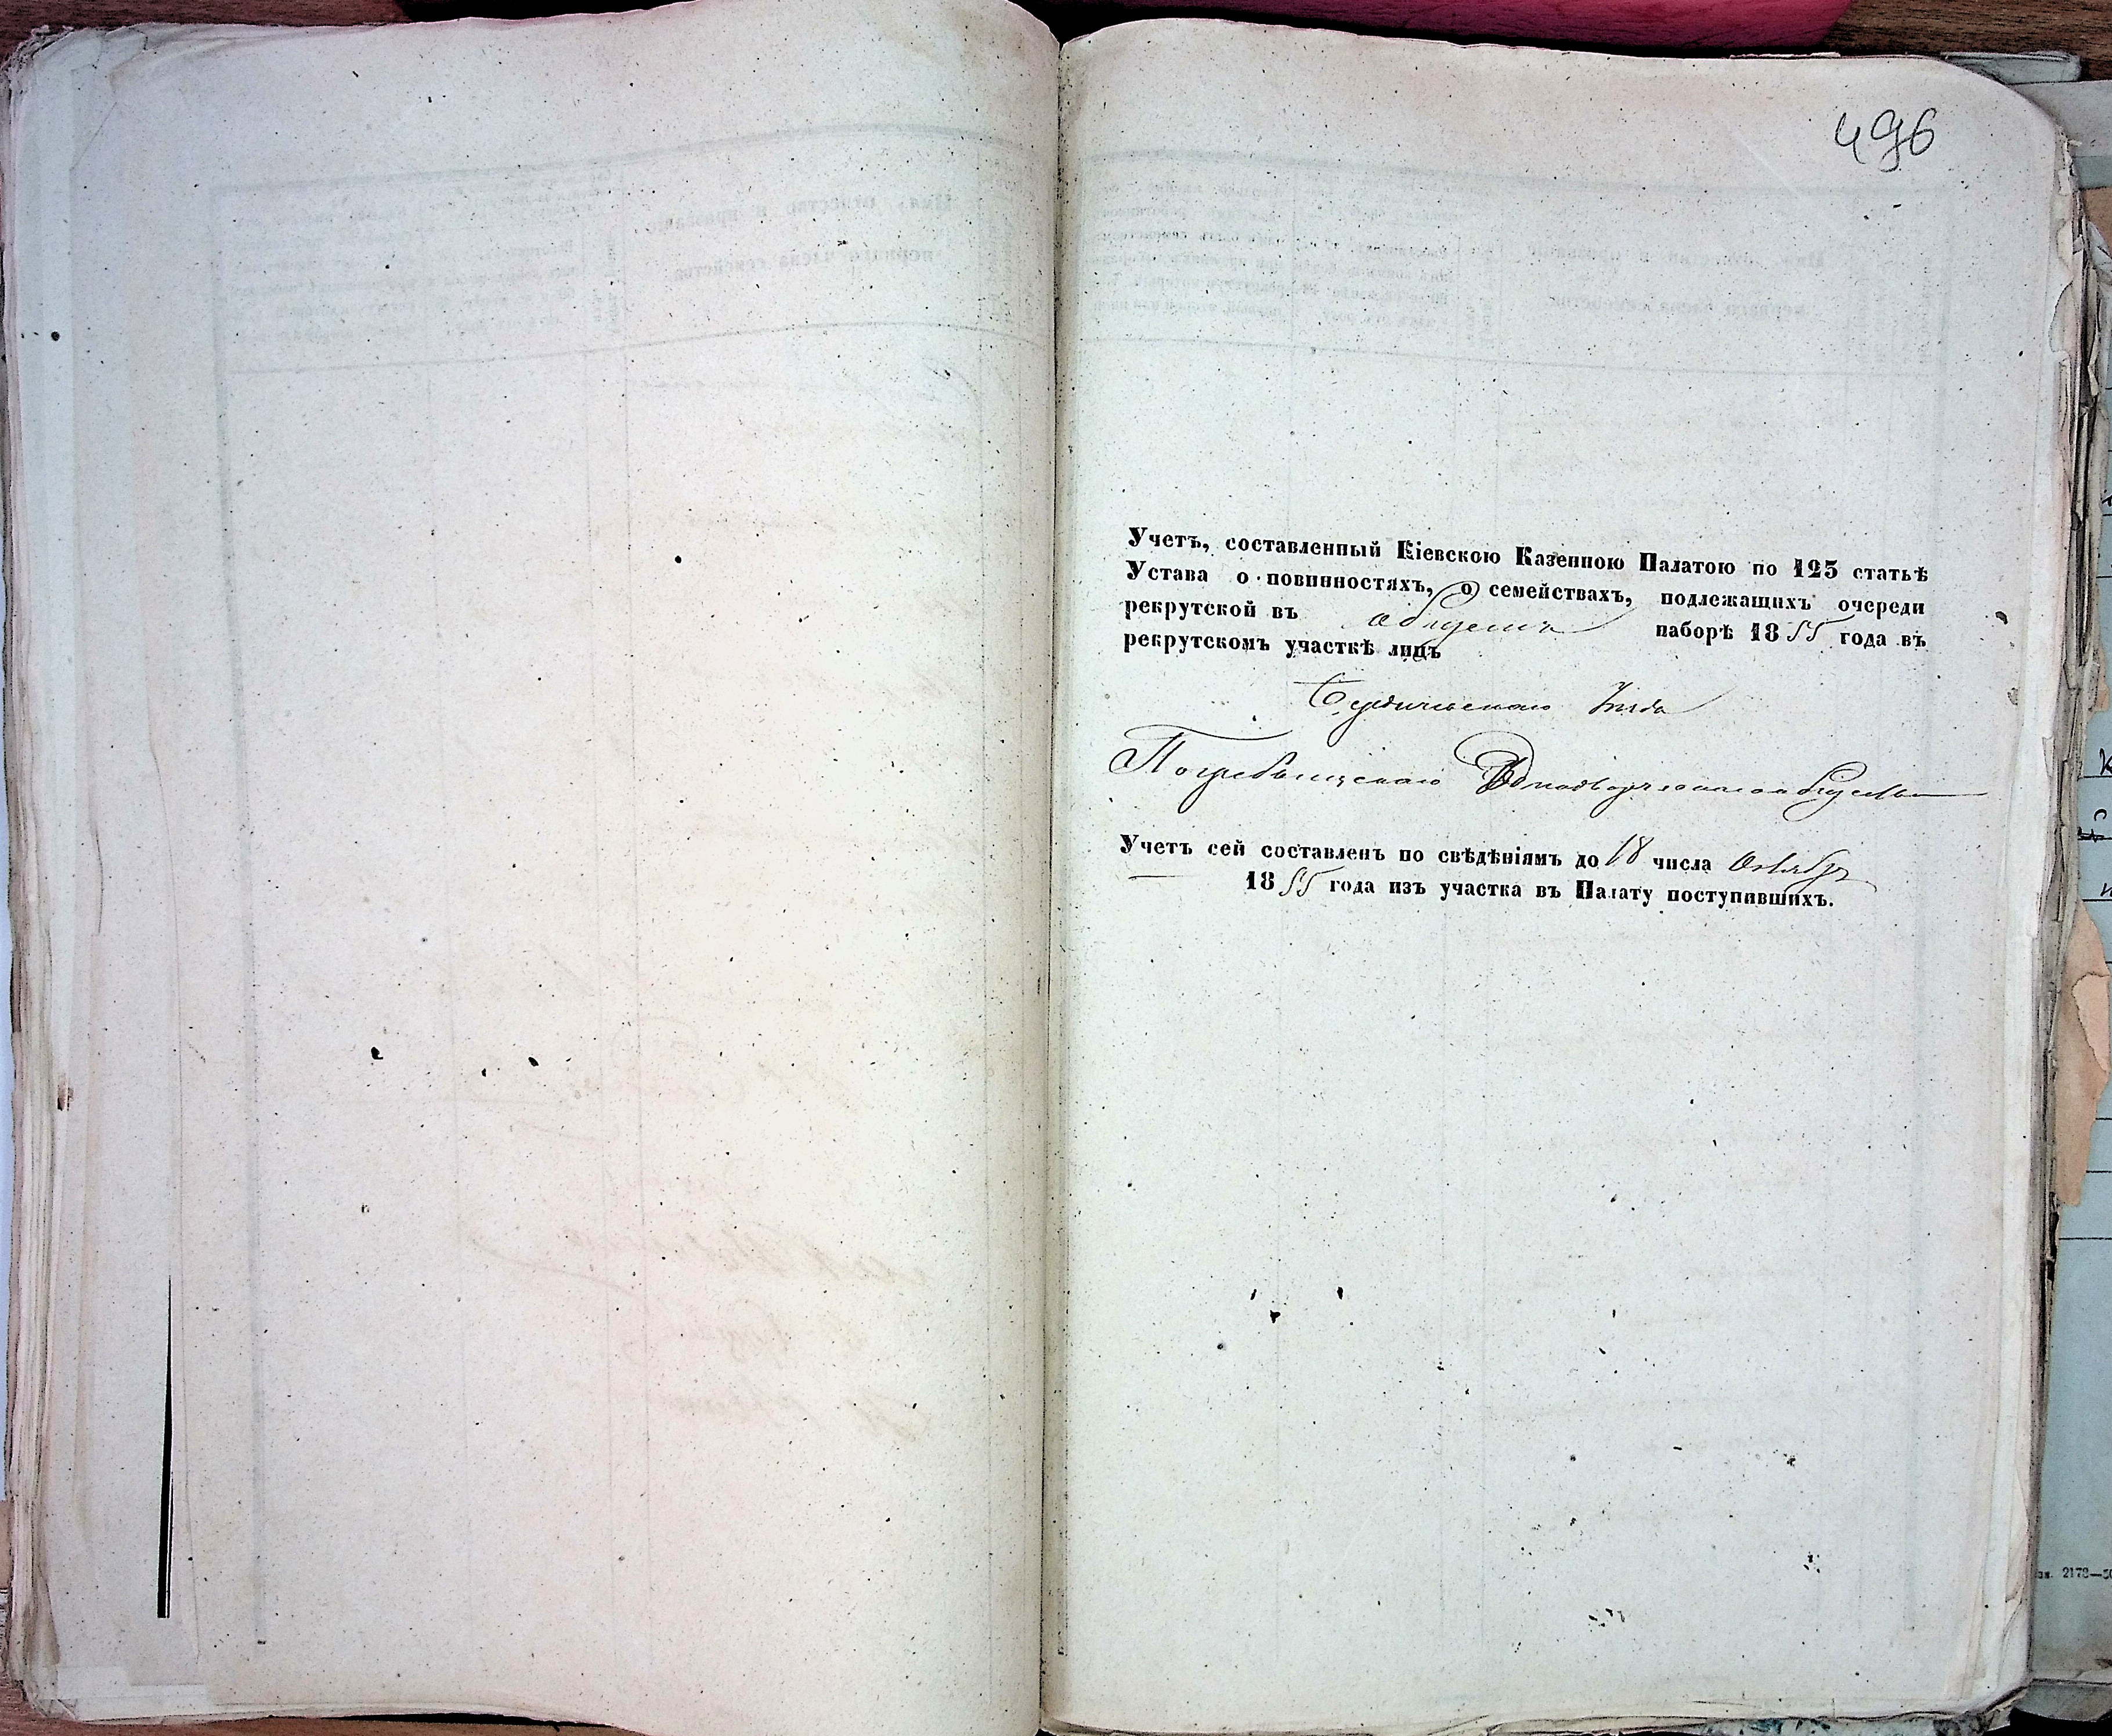 496
Учетъ, составленный Кіевскою Казенною Палатою по 125 статьѣ
Устава о повинностяхъ, о семействахъ, подлежащихъ очереди
рекрутской въ общемъ наборѣ 1855 года въ
рекрутскомъ участкѣ лицъ
Бердичевскаго Уѣзда
Погребищскаго Однодворческаго Общества
Учетъ сей составленъ по свѣдѣніямъ до 18 числа Октября
1855 года изъ участка въ Палату поступившихъ.
2178